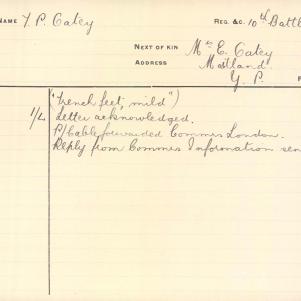 NAME J. P. Catey REG. &C. 10th Battl
NEXT OF KIN Mrs E. Catey
ADDRESS Maitland
Y. P.
("Trench feet, mild")
1/4 Letter acknowledged.
P/Cable forwarded Commis London.
Reply from Commis Information sen